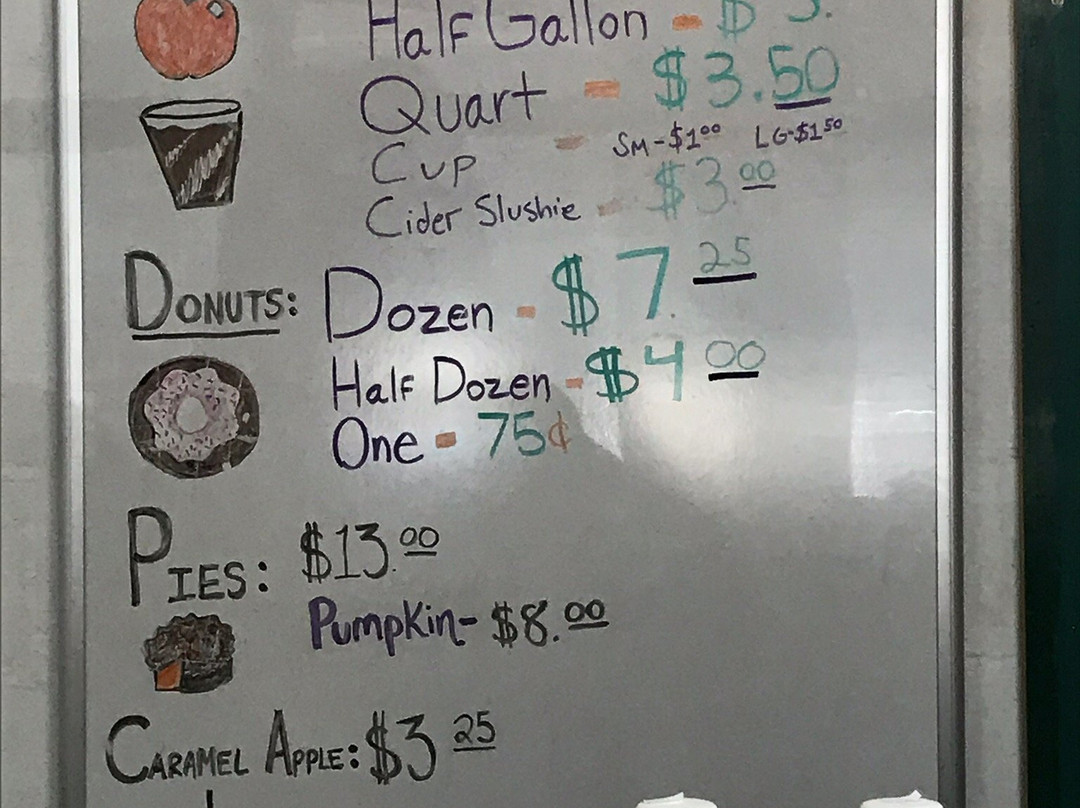 Half Gallon - $ 5.
Quart - $3.50
Cup - SM-$1⁰⁰ LG-$1⁵⁰
Cider Slushie - $3.00
DONUTS: Dozen - $7.25
Half Dozen - $4 00
One - 75¢
PIES: $13.00
Pumpkin- $8.00
CARAMEL APPLE: $3 25